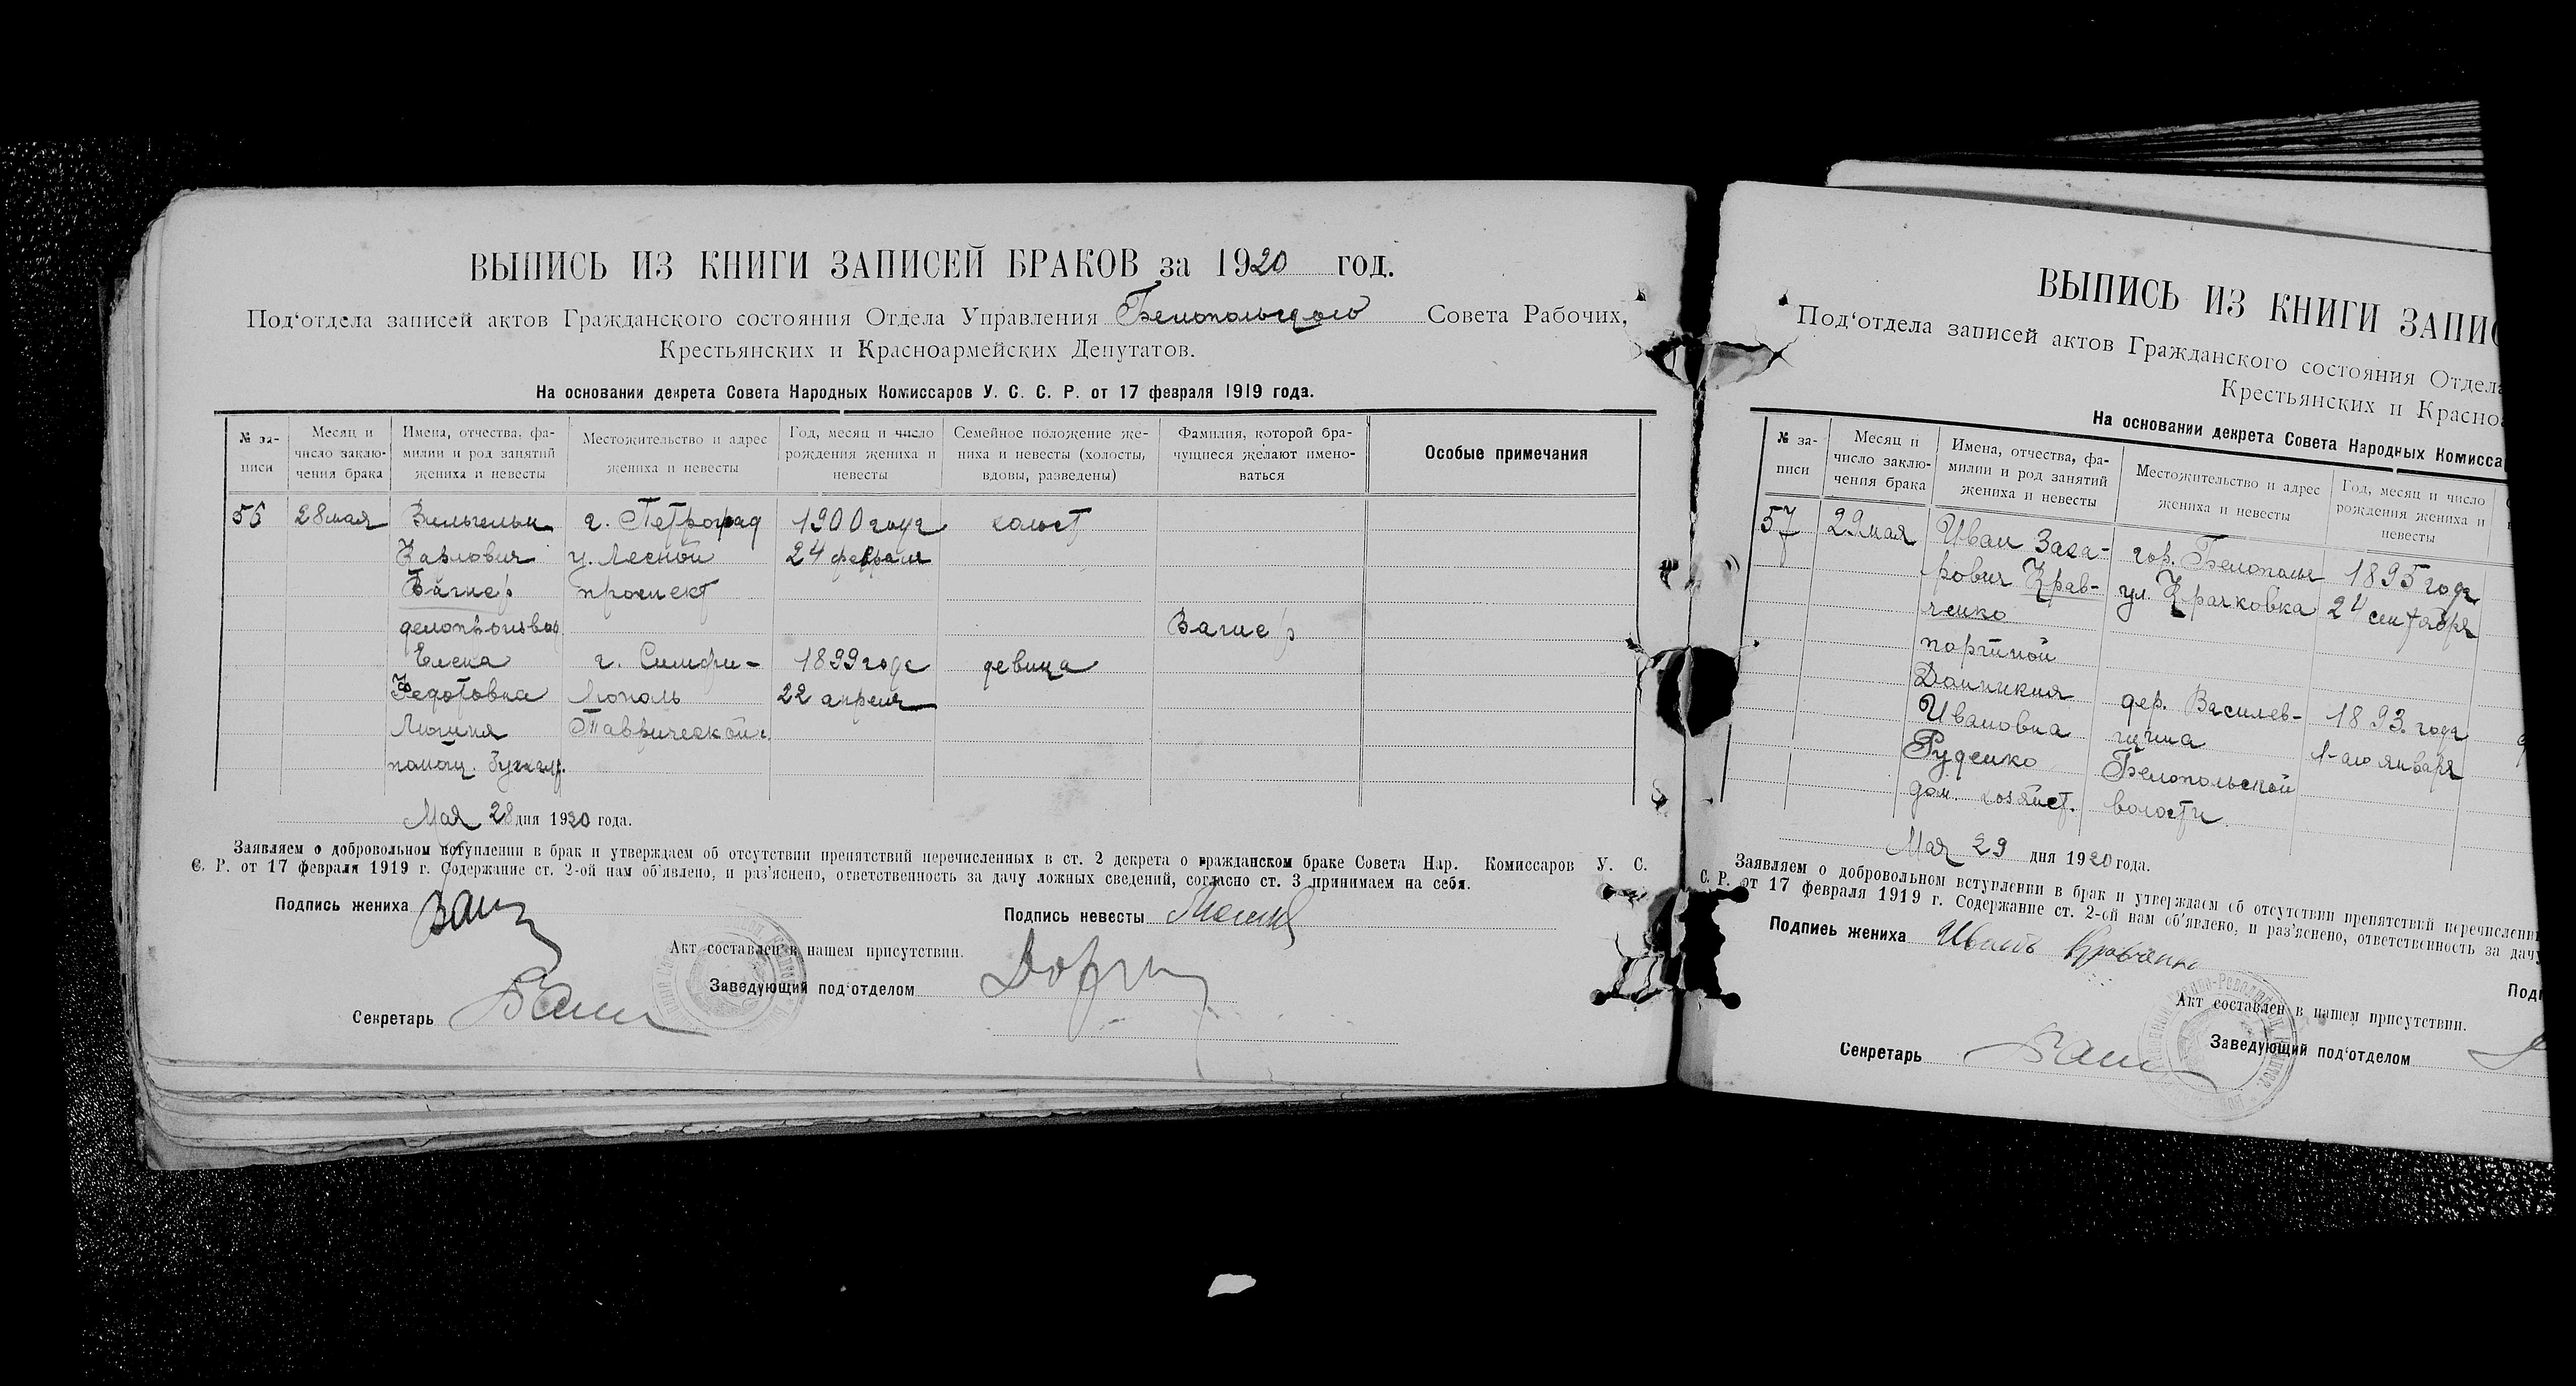 ВЫПИСЬ ИЗ КНИГИ ЗАПИСЕЙ БРАКОВ за 1920 год.
Под‘отдела записей актов Гражданского состояния Отдела Управления Белопольского Совета Рабочих,
Крестьянских и Красноармейских Депутатов.
На основании декрета Совета Народных Комиссаров У. С. С. Р. от 17 февраля 1919 года.
№ за-
писи
Месяц и
число заклю-
чения брака
Имена, отчества, фа-
милии и род занятий
жениха и невесты
Местожительство и адрес
жениха и невесты
Год, месяц и число
рождения жениха и
невесты
Семейное положение же-
ниха и невесты (холосты,
вдовы, разведены)
Фамилия, которой бра-
чущиеся желают имено-
ваться
Особые примечания
56 28 мая Вильгельм г. Петроград 1900 года холост
Карлович у. Лесной 24 февраля
Вагнер проспект
делопроизвод. Вагнер
Елена г. Симфи- 1899 года девица
Федотовна рополь 22 апреля
Таврической г.
помощ. бухгал.
Мая 28 дня 1920 года.
Заявляем о добровольном вступлении в брак и утверждаем об отсутствии препятствий перечисленных в ст. 2 декрета о гражданском браке Совета Нар. Комиссаров У. С.
С. Р. от 17 февраля 1919 г. Содержание ст. 2-ой нам об‘явлено, и раз‘яснено, ответственность за дачу ложных сведений, согласно ст. 3 принимаем на себя.
Подпись жениха
Подпись невесты
Акт составлен в нашем присутствии.
Заведующий под‘отделом
Секретарь
ВЫПИСЬ ИЗ КНИГИ ЗАПИС
Под‘отдела записей актов Гражданского состояния Отдела
Крестьянских и Красно
На основании декрета Совета Народных Комисса
№ за-
писи
Месяц и
число заклю-
чения брака
Имена, отчества, фа-
милии и род занятий
жениха и невесты
Местожительство и адрес
жениха и невесты
Год, месяц и число
рождения жениха и
невесты
57 29 мая Иван Заха- гор. Белополье 1895 года
рович Крав- ул. Крачковка 24 сентября
ченко
портной
Домникия дер. Василев- 1893 года
Ивановна щина 1-го января
Руденко Белопольской
дом. хозяйст. волости
Мая 29 дня 1920 года.
Заявляем о добровольном вступлении в брак и утверждаем об отсутствии препятствий перечисленн
С. Р. от 17 февраля 1919 г. Содержание ст. 2-ой нам об‘явлено, и раз‘яснено, ответственность за дачу
Подпись жениха Иванъ Кравченко
Подп
Акт составлен в нашем присутствии.
Заведующий под‘отделом
Секретарь